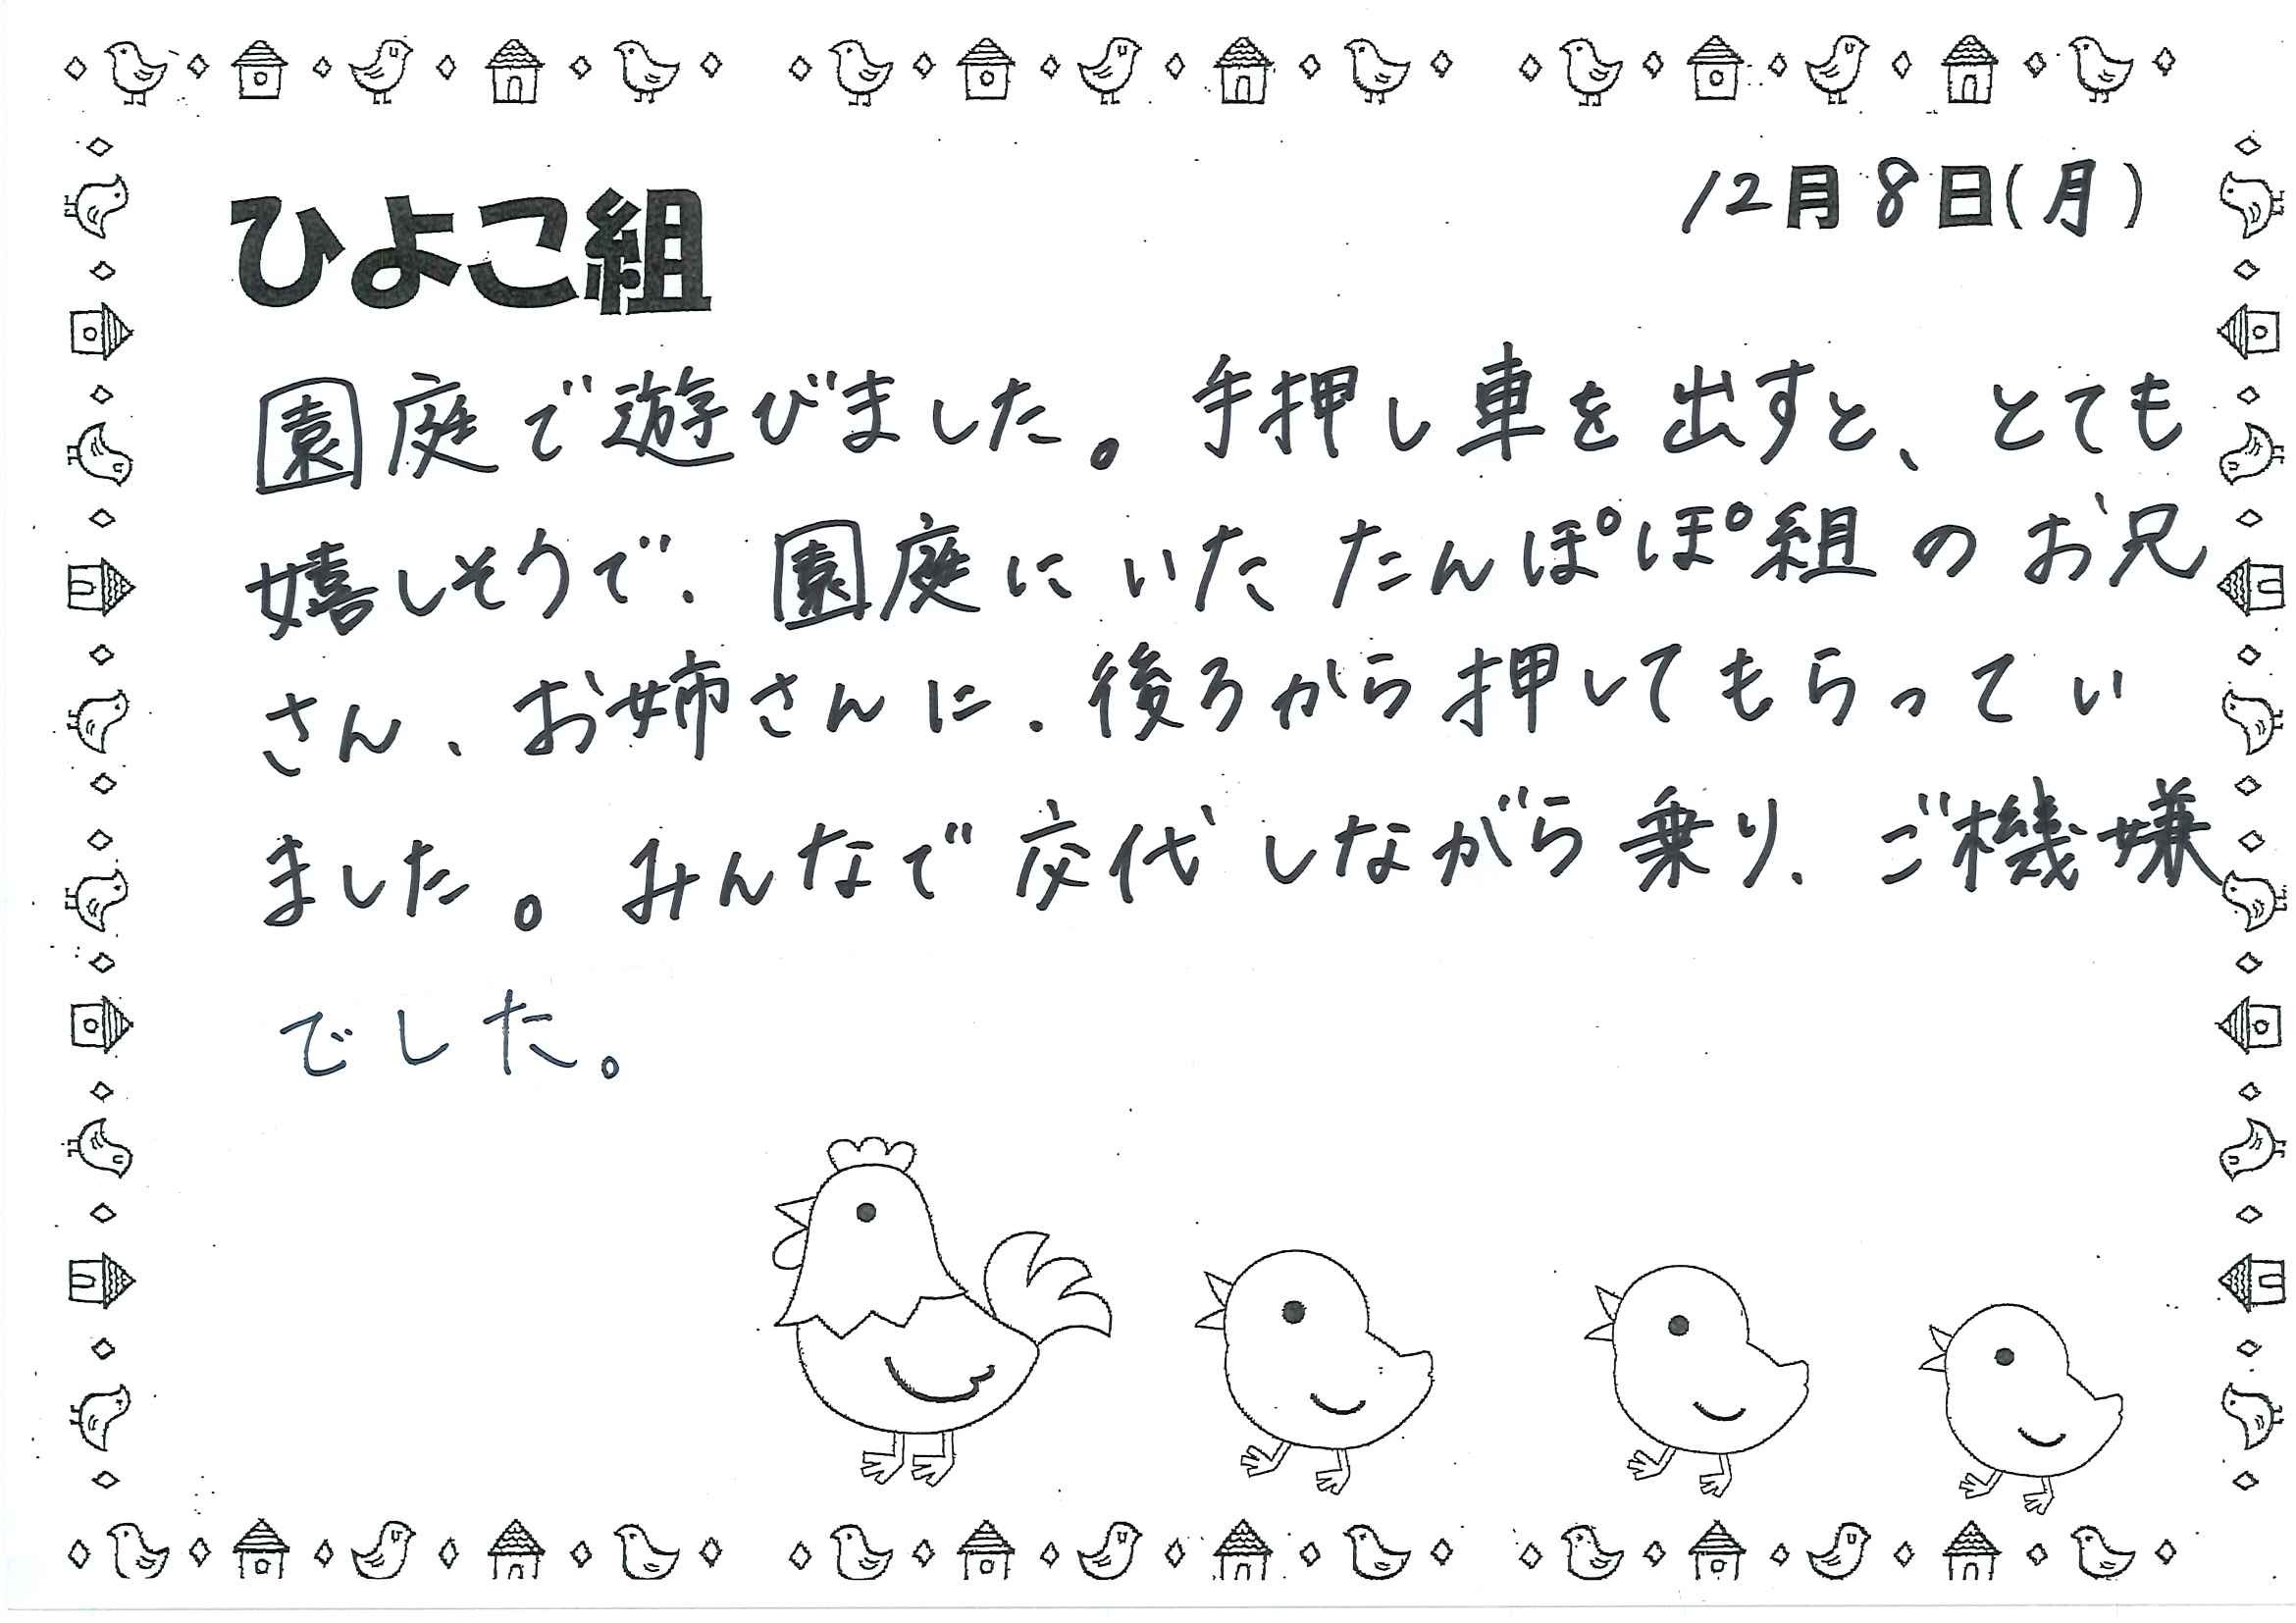 12月8日(月)
ひよこ組
園庭で遊びました。手押し車を出すと、とても
嬉しそうで、園庭にいたたんぽぽ組のお兄
さん、お姉さんに、後ろから押してもらってい
ました。みんなで交代しながら乗り、ご機嫌
でした。